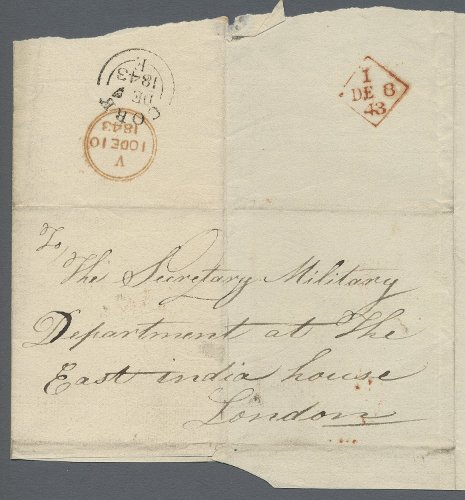 CORK
DE
1843
K
V
10DE10
1843
1
DE 8
43
To,
The Secretary Military
Department at The
East india house
London